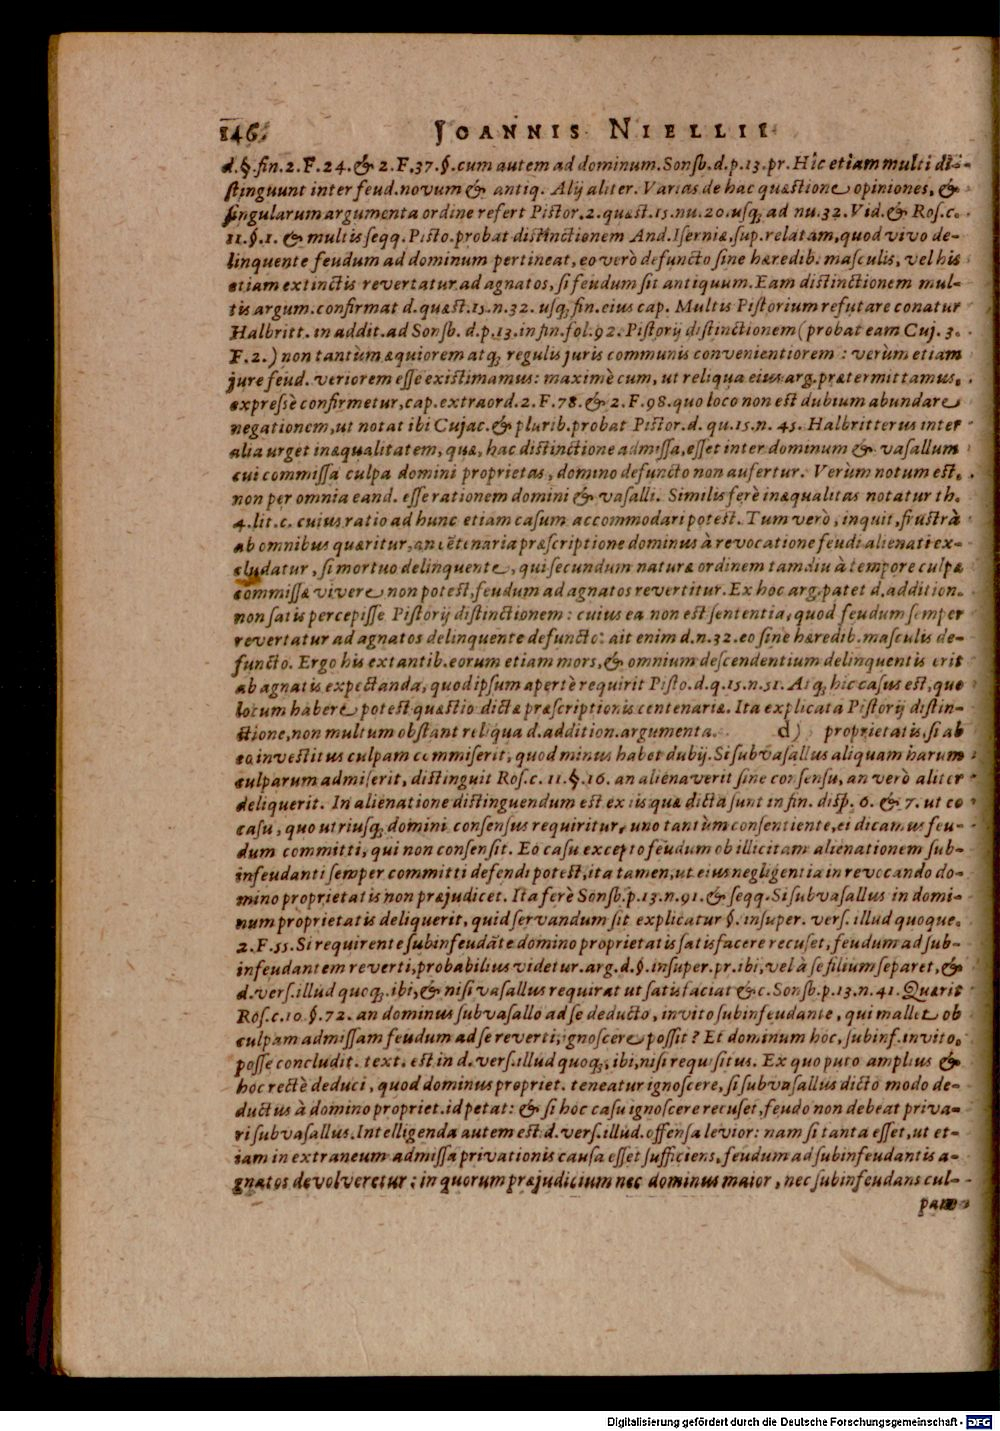 146. JOANNIS NIELLII
d.§.fin.2.F.24.& 2.F.37.§.cum autem ad dominum.Sonſb.d.p.13.pr.Hic etiam multi di-
ſtinguunt inter feud.novum & antiq. Alij aliter. Varias de hac quæſtione opiniones, &
ſingularum argumenta ordine refert Piſtor.2.quæſt.15.nu.20.uſq; ad nu.32.Vid.& Roſ.c.
11.§.1. & multis ſeqq.Piſto.probat diſtinctionem And.Iſerniæ,ſup.relatam,quod vivo de-
linquente feudum ad dominum pertineat, eo verò defuncto ſine hæredib. maſculis, vel his
etiam extinctis revertatur ad agnatos, ſi feudum ſit antiquum.Eam diſtinctionem mul-
tis argum.confirmat d.quæſt.15.n.32. uſq; fin.eius cap. Multis Piſtorium refutare conatur
Halbritt. in addit.ad Sonſb. d.p.13.in fin.fol.92.Piſtorij diſtinctionem(probat eam Cuj. 3.
F.2.) non tantùm æquiorem atq; regulis juris communis convenientiorem : verùm etiam
jure feud. veriorem eſſe exiſtimamus: maximè cum, ut reliqua eius arg.prætermittamus,
expreſsè confirmetur,cap.extraord.2.F.78.& 2.F.98.quo loco non eſt dubium abundare
negationem,ut notat ibi Cujac.& plurib.probat Piſtor.d. qu.15.n. 45. Halbritterus inter
alia urget inæqualitatem, quæ, hac diſtinctione admiſſa,eſſet inter dominum & vaſallum
cui commiſſa culpa domini proprietas, domino defuncto non aufertur. Verùm notum eſt,
non per omnia eand. eſſe rationem domini & vaſalli. Similis ferè inæqualitas notatur th.
4.lit.c. cuius ratio ad hunc etiam caſum accommodari poteſt. Tum verò, inquit,fruſtrà
ab omnibus quæritur,an cētenaria præſcriptione dominus à revocatione feudi alienati ex-
cludatur, ſi mortuo delinquente, qui ſecundum naturæ ordinem tamdiu à tempore culpæ
commiſſæ vivere non poteſt,feudum ad agnatos revertitur.Ex hoc arg.patet d.addition.
non ſatis percepiſſe Piſtorij diſtinctionem: cuius ea non eſt ſententia, quod feudum ſemper
revertatur ad agnatos delinquente defuncto: ait enim d.n.32.eo ſine hæredib.maſculis de-
functo. Ergo his extantib.eorum etiam mors,& omnium deſcendentium delinquentis erit
ab agnatis expectanda, quod ipſum apertè requirit Piſto.d.q.15.n.51. Atq; hic caſus eſt,quo
locum habere poteſt quæſtio dictæ præſcriptionis centenariæ. Ita explicata Piſtorij diſtin-
ctione,non multum obſtant reliqua d.addition.argumenta. d) proprietatis, ſi ab
eo inveſtitus culpam commiſerit, quod minus habet dubij.Si ſubvaſallus aliquam harum
culparum admiſerit, diſtinguit Roſ.c. 11.§.16. an alienaverit ſine conſenſu, an verò aliter
deliquerit. In alienatione diſtinguendum eſt ex iis quæ dicta ſunt in fin. diſp. 6. & 7. ut eo
caſu, quo utriuſq; domini conſenſus requiritur, uno tantùm conſentiente,ei dicamus feu-
dum committi, qui non conſenſit. Eo caſu excepto feudum ob illicitam alienationem ſub-
infeudanti ſemper committi defendi poteſt,ita tamen,ut eius negligentia in revocando do-
mino proprietatis non præjudicet. Ita ferè Sonſb.p.13.n.91.& ſeqq.Si ſubvaſallus in domi-
num proprietatis deliquerit, quid ſervandum ſit explicatur §.inſuper. verſ.illud quoque.
2.F.55.Si requirente ſubinfeudāte domino proprietatis ſatisfacere recuſet,feudum ad ſub-
infeudantem reverti,probabilius videtur.arg.d.§.inſuper.pr.ibi,vel à ſe filium ſeparet,&
d.verſ.illud quoq.ibi,& niſi vaſallus requirat ut ſatisfaciat &c.Sonſb.p.13.n.41.Quærit
Roſ.c.10 §.72. an dominus ſubvaſallo ad ſe deducto, invito ſubinfeudante, qui mallet ob
culpam admiſſam feudum ad ſe reverti,ignoſcere poſſit ? Et dominum hoc, ſubinf.invito,
poſſe concludit. text. eſt in d.verſ.illud quoq;, ibi,niſi requiſitus. Ex quo puto amplius &
hoc rectè deduci, quod dominus propriet. teneatur ignoſcere, ſi ſubvaſallus dicto modo de-
ductus à domino propriet.id petat: & ſi hoc caſu ignoſcere recuſet,feudo non debeat priva-
ri ſubvaſallus.Intelligenda autem eſt d.verſ.illud.offenſa levior: nam ſi tanta eſſet,ut et-
iam in extraneum admiſſa privationis cauſa eſſet ſufficiens,feudum ad ſubinfeudantis a-
gnatos devolveretur: in quorum præjudicium nec dominus maior, nec ſubinfeudans cul-
pam
Digitalisierung gefördert durch die Deutsche Forschungsgemeinschaft - DFG